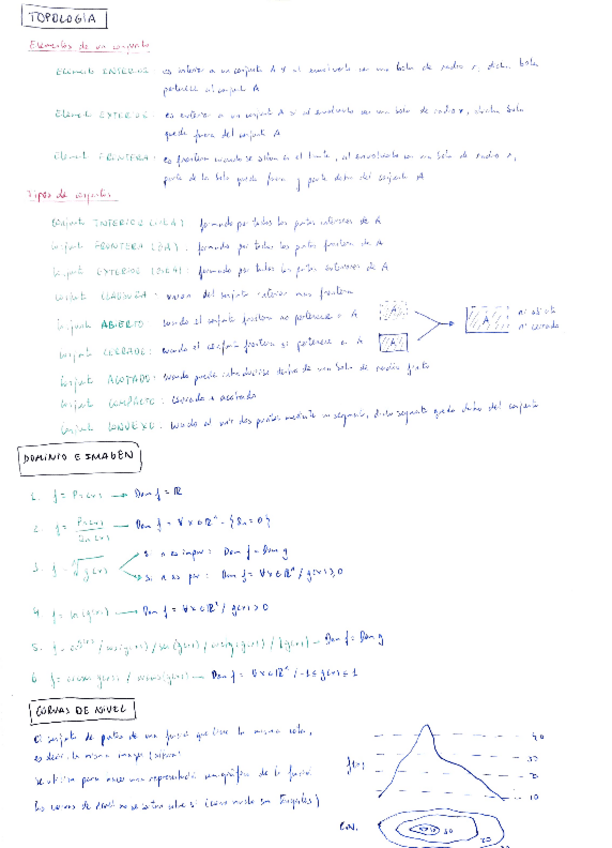 TOPOLOGÍA
Elementos de un conjunto
Elemento INTERIOR: es interior a un conjunto A si al envolverlo con una bola de radio r, dicha bola
pertenece al conjunto A
Element EXTERIOR: es exterior a un conjunto A si al envolverlo con una bola de radio r, dicha bola
queda fuera del conjunto A
Element FRONTERA: es frontera cuando se sitúa en el límite, al envolverlo con una bola de radio r,
parte de la bola queda fuera y parte dentro del conjunto A
Tipos de conjuntos
Conjunto INTERIOR: formado por todos los puntos interiores de A
Conjunto FRONTERA: formado por todos los puntos frontera de A
Conjunto EXTERIOR: formado por todos los puntos exteriores de A
Conjunto CLAUSURA: unión del conjunto interior más frontera
Conjunto ABIERTO: cuando el conjunto frontera no pertenece a A
Conjunto CERRADO: cuando el conjunto frontera sí pertenece a A
A
A
A
ni abierto
ni cerrado
Conjunto ACOTADO: cuando puede introducirse dentro de una bola de radio finito
Conjunto COMPACTO: cerrado + acotado
Conjunto CONVEXO: cuando al unir dos puntos mediante un segmento, dicho segmento queda dentro del conjunto
DOMINIO E IMAGEN
1. f = Pn(x) → Dom f = ℝ
2. f = Pn(x)/Qn(x) → Dom f = ∀x∈ℝⁿ - {Qn=0}
3. f = ⁿ√g(x)
si n es impar: Dom f = Dom g
si n es par: Dom f = ∀x∈ℝⁿ / g(x)≥0
4. f = ln(g(x)) → Dom f = ∀x∈ℝⁿ / g(x)>0
5. Dom f = Dom g
6. Dom f = ∀x∈ℝⁿ / -1≤g(x)≤1
CURVAS DE NIVEL
El conjunto de puntos de una función que tiene la misma cota,
es decir, la misma imagen
Se utiliza para hacer una representación de la función
Las curvas de nivel no se cortan entre sí (como mucho son tangentes)
f(x)
40
30
20
10
C.N.
30
20